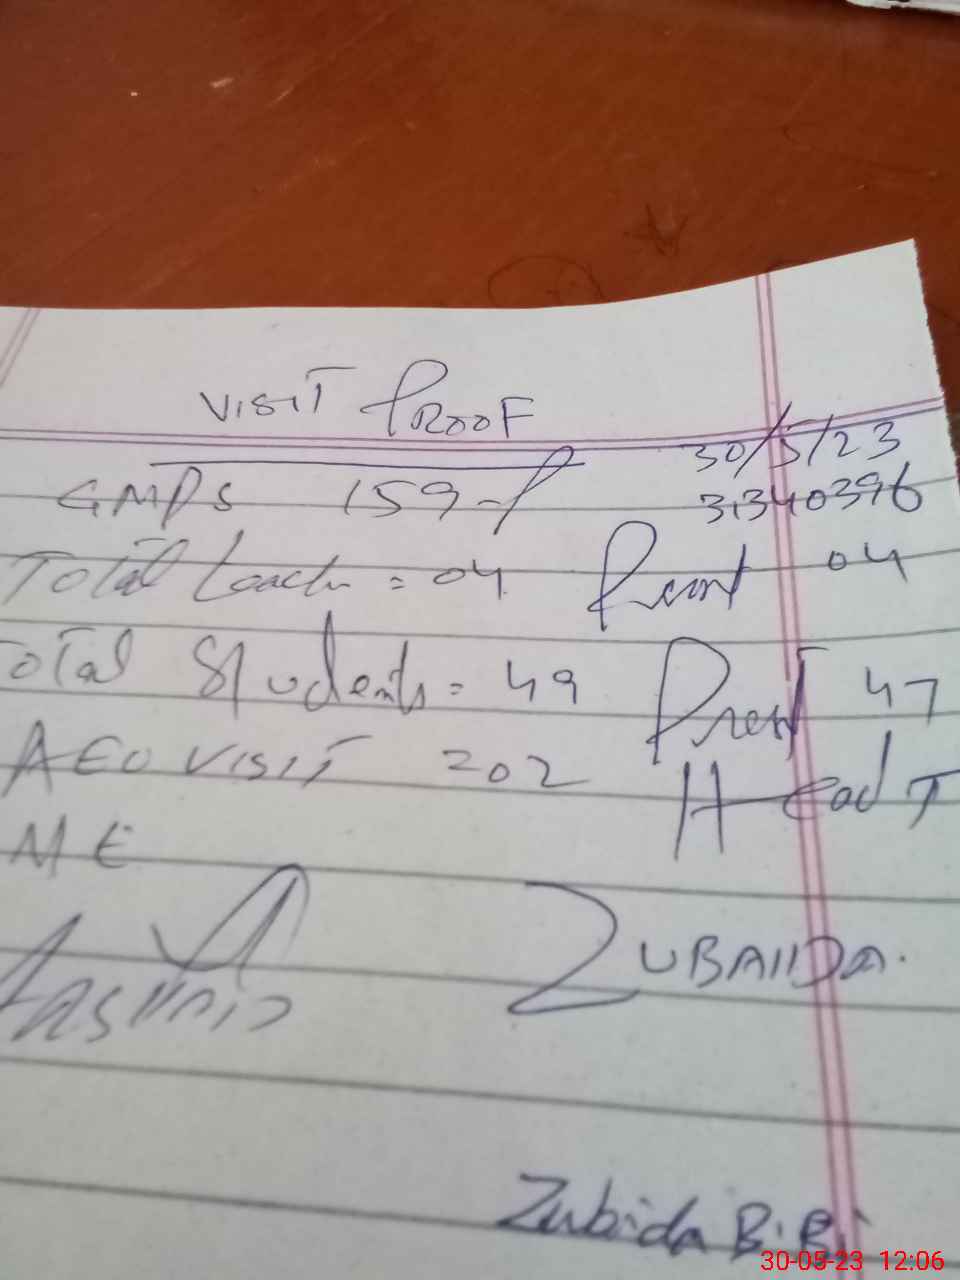 VISIT PROOF
30/5/23
GMPS 159-P
31340396
Total teach = 04 Present 04
Total Students = 49 Present 47
AEO VISIT = 02
Head T
ME
ZUBAIIDA.
Zubida Bibi
30-05-23 12:06